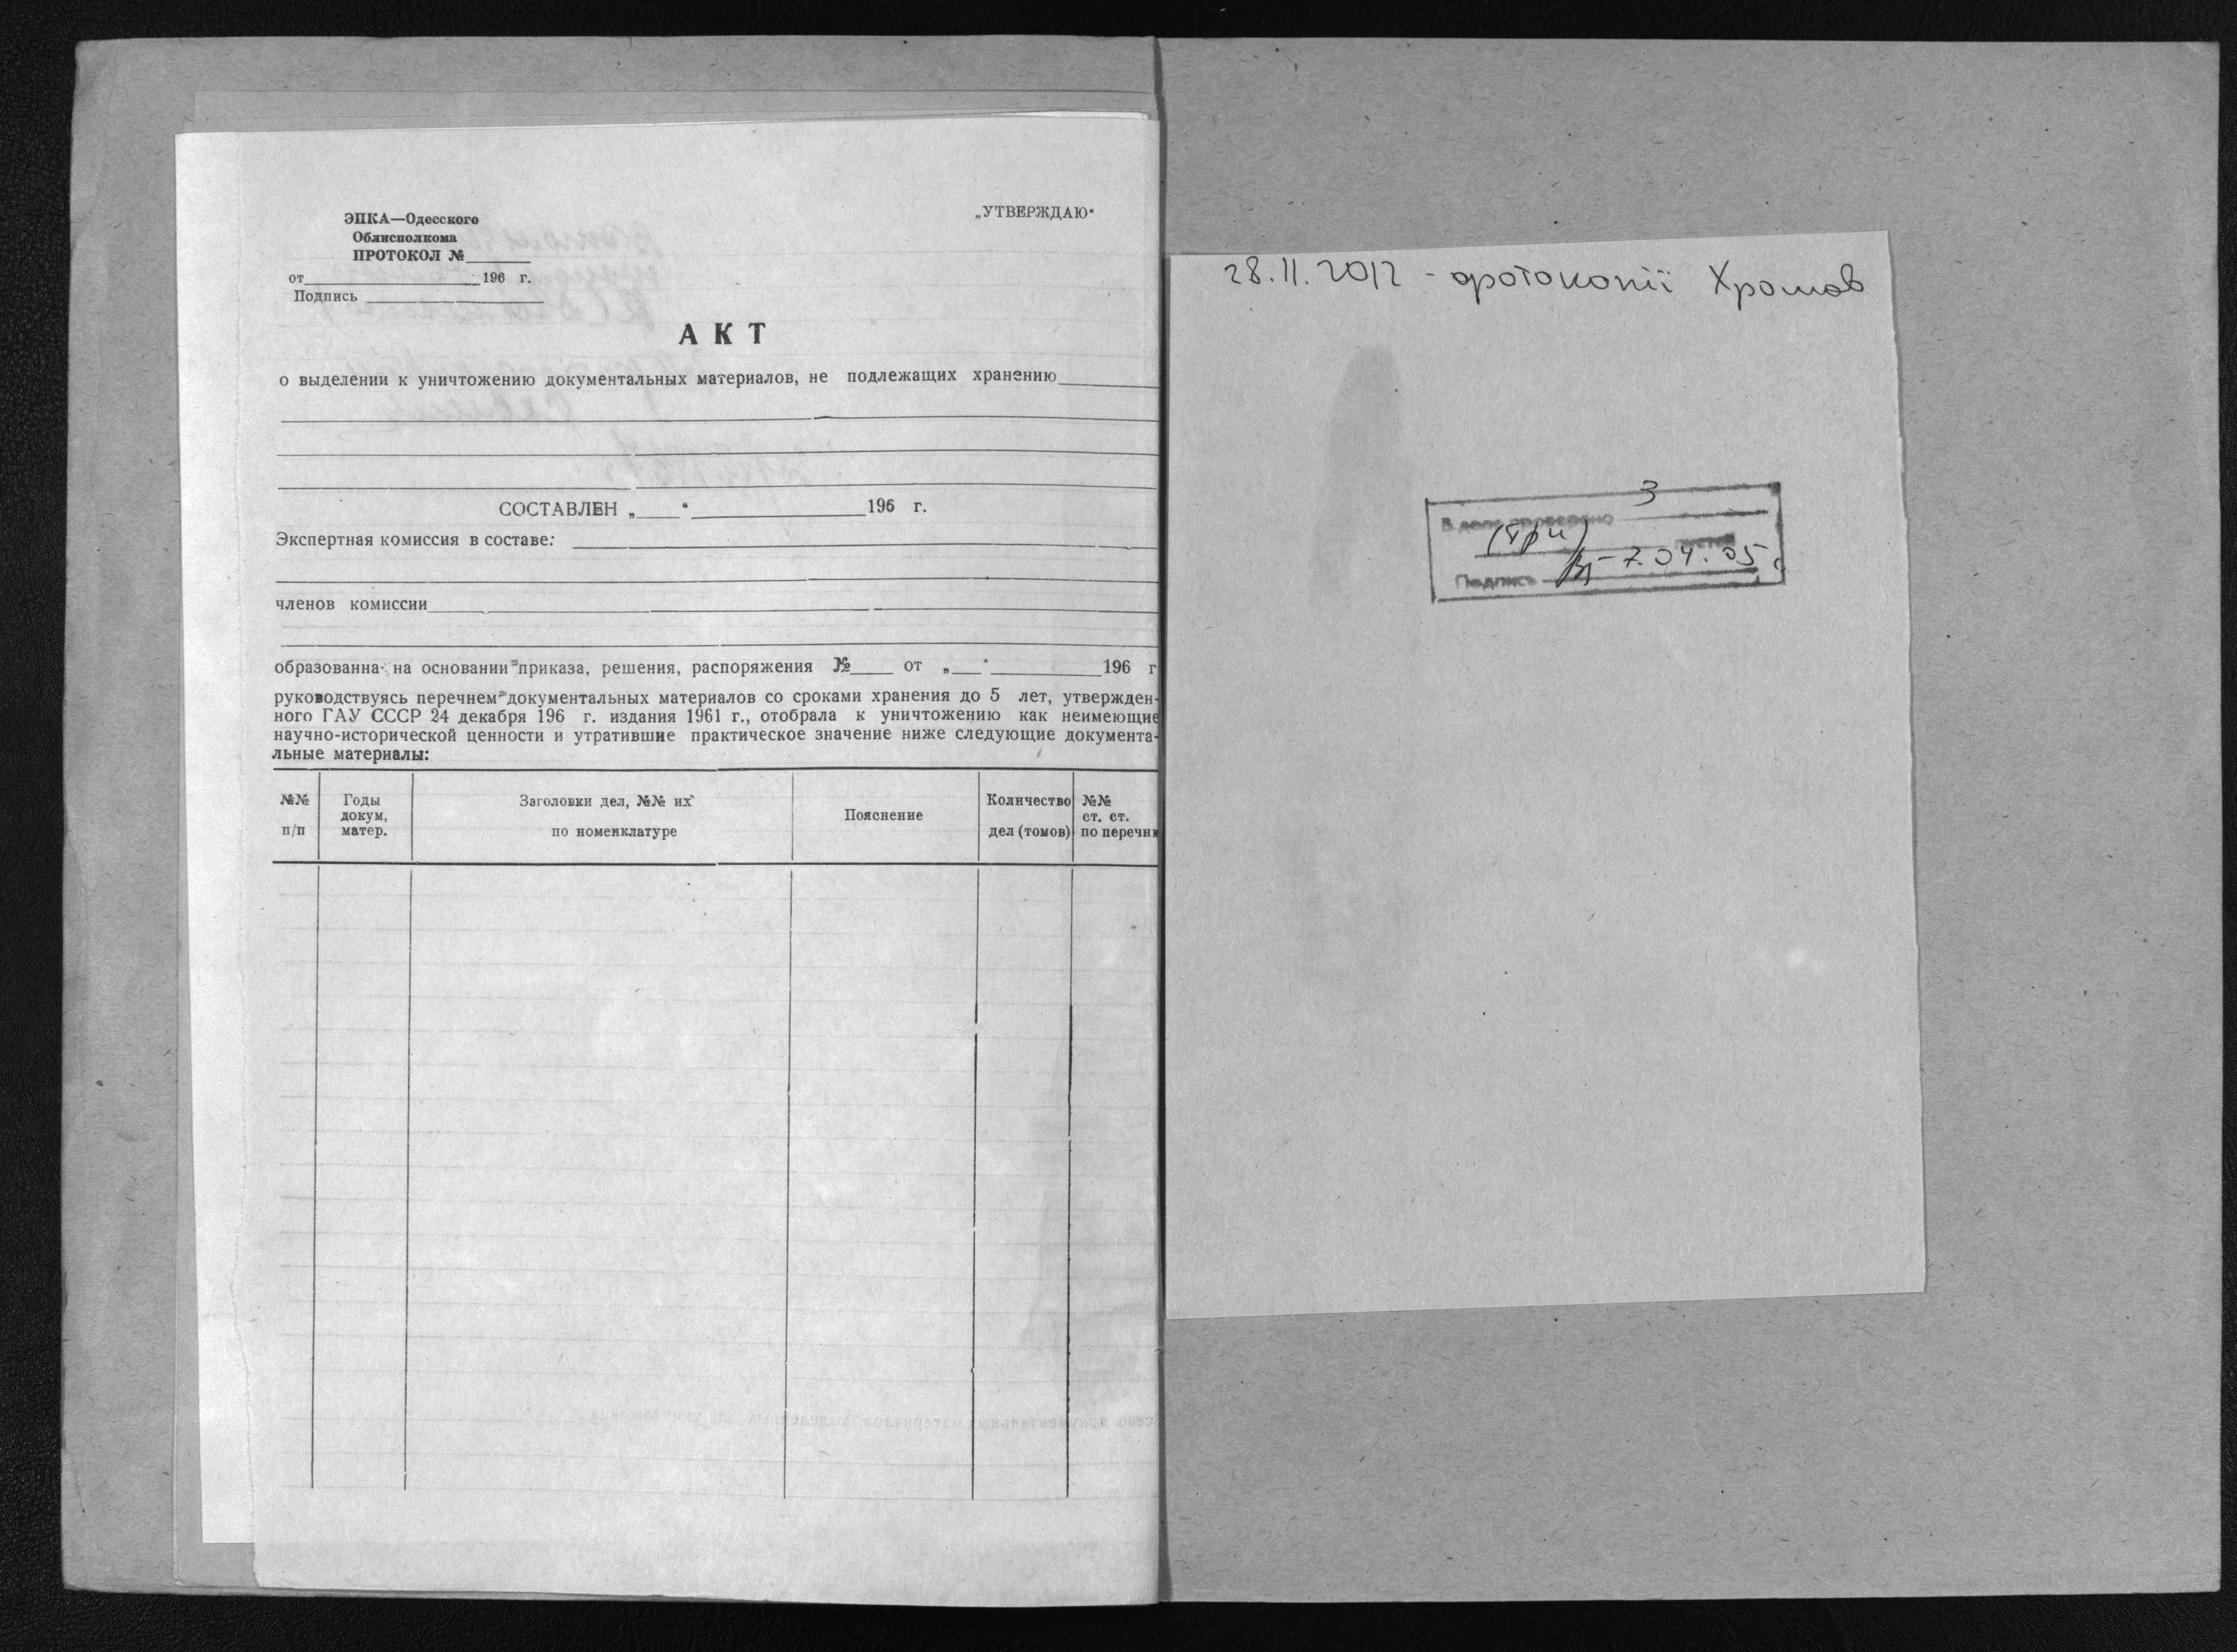 ЭПКА—Одесского
Облисполкома
ПРОТОКОЛ №
от 196 г.
Подпись
„УТВЕРЖДАЮ“
АКТ
о выделении к уничтожению документальных материалов, не подлежащих хранению
СОСТАВЛЕН „ “ 196 г.
Экспертная комиссия в составе:
членов комиссии
образованна на основании приказа, решения, распоряжения № от „ “ 196 г
руководствуясь перечнем документальных материалов со сроками хранения до 5 лет, утвержден-
ного ГАУ СССР 24 декабря 196 г. издания 1961 г., отобрала к уничтожению как неимеющие
научно-исторической ценности и утратившие практическое значение ниже следующие документа-
льные материалы:
№№ п/п
Годы докум, матер.
Заголовки дел, №№ их по номенклатуре
Пояснение
Количество дел (томов)
№№ ст. ст. по перечн
28.11.2012 - фотокопії Хромов
3
В деле проверено
(три) листов
Подпись 7.04.05 г